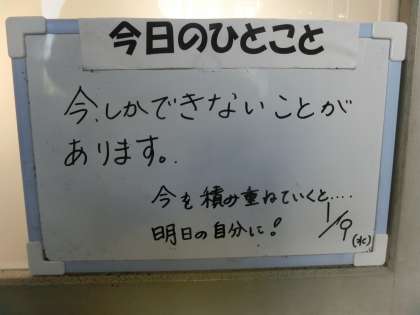 今日のひとこと
今、しかできないことが
あります。
今を積み重ねていくと....
明日の自分に!
1/9
(水)